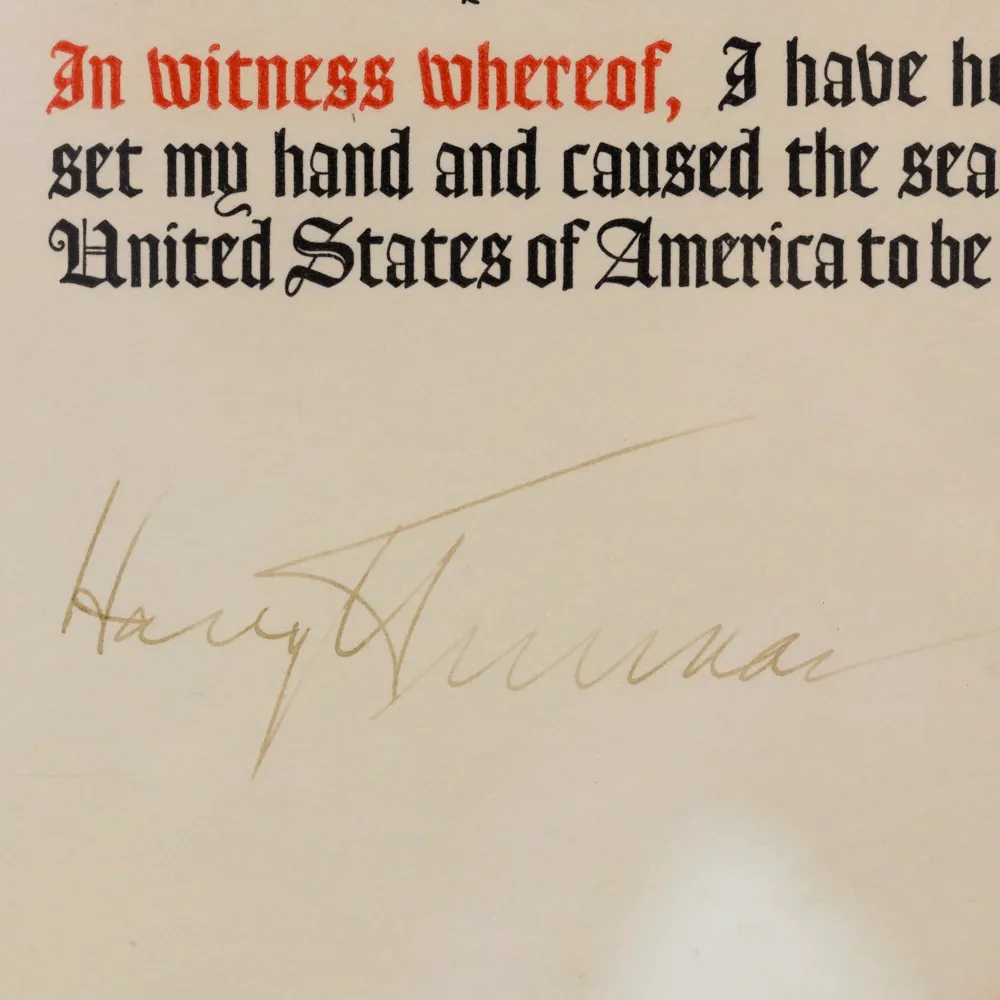 In witness whereof, I have he
set my hand and caused the sea
United States of America to be
Harry Truman